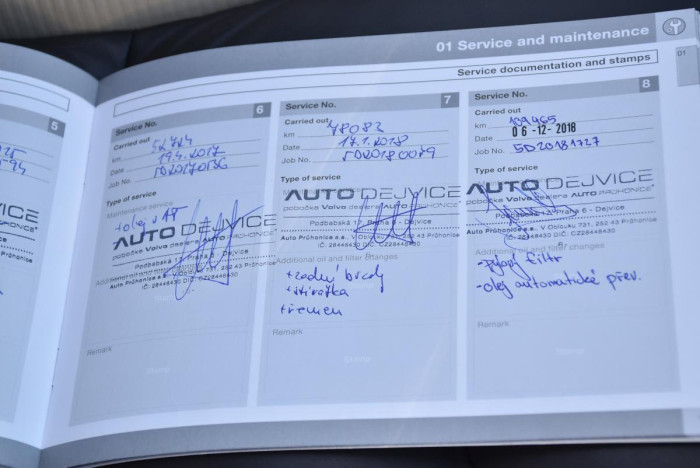 01 Service and maintenance
01
Service documentation and stamps
5
Service No. 6
Carried out
km 52724
Date 19.4.2017
Job No.
Type of service
Maintenance service
+ olej v AP
AUTO DEJVICE
pobočka Volvo dealera AUTO PRŮHONICE
Podbabská 17, Praha 6 - Dejvice
Auto Průhonice a.s., V Oblouku 731, 252 43 Průhonice
IČ: 28448430 DIČ: CZ28448430
Remark
Service No. 7
Carried out
km 78082
Date 17.1.2018
Job No. 5D20180079
Type of service
AUTO DEJVICE
pobočka Volvo dealera AUTO PRŮHONICE
Podbabská 17, Praha 6 - Dejvice
Auto Průhonice a.s., V Oblouku 731, 252 43 Průhonice
IČ: 28448430 DIČ: CZ28448430
Additional oil and filter changes
+zadní brzdy
+stíračka
+řemen
Remark
Service No. 8
Carried out
km 109465
Date 06-12-2018
Job No. 5D20181727
Type of service
AUTO DEJVICE
pobočka Volvo dealera AUTO PRŮHONICE
Podbabská 17, Praha 6 - Dejvice
Auto Průhonice a.s., V Oblouku 731, 252 43 Průhonice
IČ: 28448430 DIČ: CZ28448430
Additional oil and filter changes
-pylový filtr
-olej automatické přev.
Remark